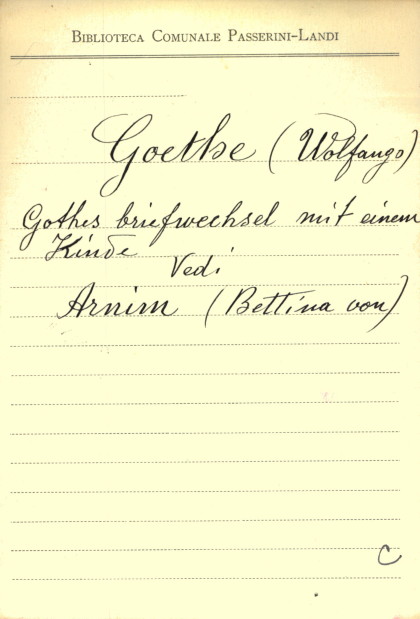 BIBLIOTECA COMUNALE PASSERINI-LANDI
Goethe (Wolfango)
Gothes briefwechsel mit einem
Kinde
Vedi
Arnim (Bettina von)
C